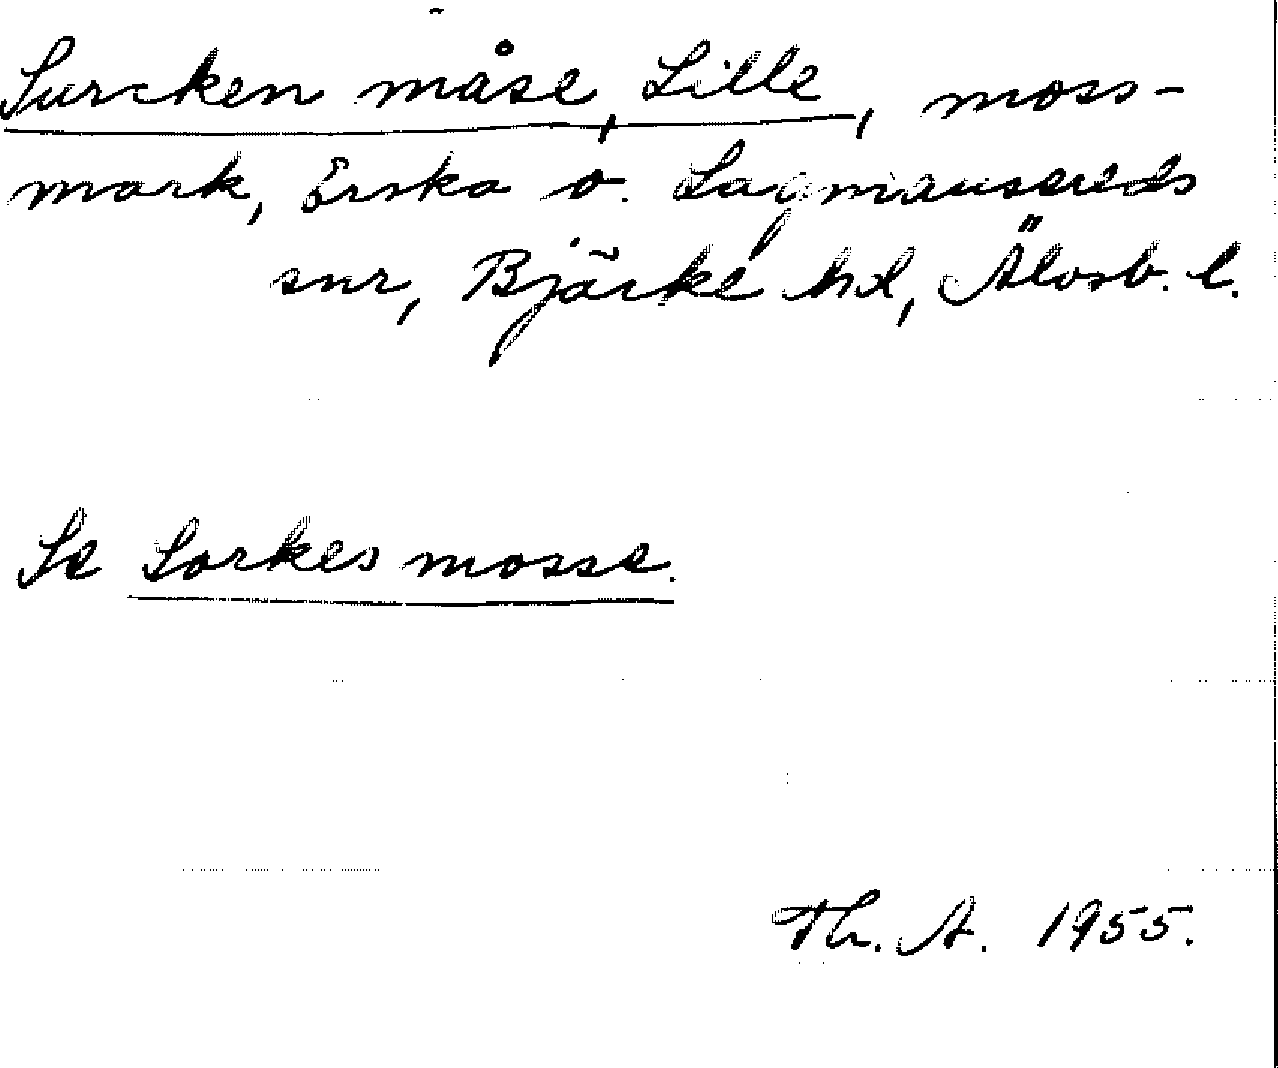 Surcken måse, Lille, moss-
mark, Erska o. Lagmansereds
snr, Bjärke hd, Älvsb. l.
Se Sorkes mosse.
Th. A. 1955.